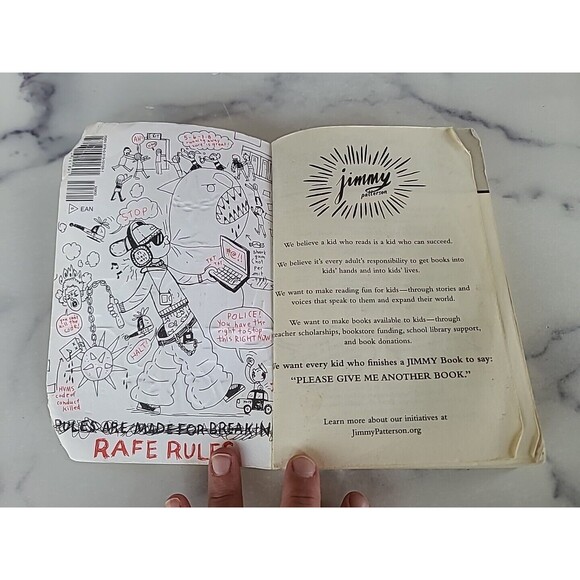 EAN
STOP!
TXT
TXT
#@!!
POLICE!
You have the
right to stop
this RIGHT NOW!
HALT!
HVMS
code of
conduct
killed
RULES ARE MADE FOR BREAKIN
RAFE RULES
jimmy
patterson
We believe a kid who reads is a kid who can succeed.
We believe it's every adult's responsibility to get books into
kids' hands and into kids' lives.
We want to make reading fun for kids—through stories and
voices that speak to them and expand their world.
We want to make books available to kids—through
teacher scholarships, bookstore funding, school library support,
and book donations.
We want every kid who finishes a JIMMY Book to say:
"PLEASE GIVE ME ANOTHER BOOK."
Learn more about our initiatives at
JimmyPatterson.org